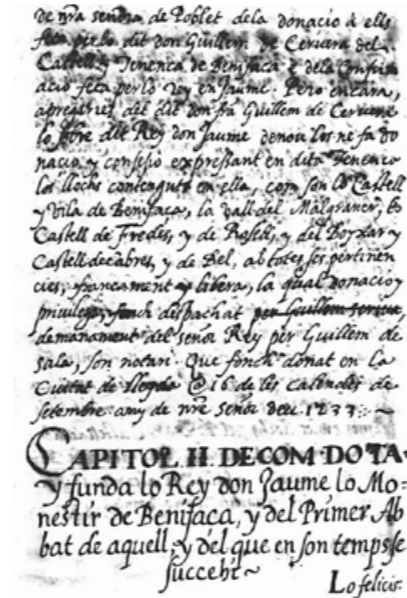 de nra senora de Poblet dela donació à ells
feta per lo dit don Guillem de Ceruera del
Castell y Tenença de Benifaça e dela Confirm
ació feta per lo Rey en Jaume. Pero encara,
apregaries del dit don fra Guillem de Ceruera
lo sobre dit Rey don Jaume denou los ne fa do
nacio y consesio expressant en dita Tenenca
los llochs contenguts en ella, com son lo Castell
y Vila de Benifaça, la vall del Malgraner, lo
Castell de Fredes, y de Rosell, y del Boyxar y
Castell de cabres, y de Bel, ab totes ses pertinen
cies, francament y libera, la qual donacio y
priuilegi fonch despachat per Guillem
demanament del senor Rey per Guillem de
sala, son notari. Que fonch donat en La
Ciutat de lleyda @ 16 de les calendes de
setembre any de nre senor deu 1233
CAPITOL II. DE COM DOTA
y funda lo Rey don Jaume lo Mo=
nestir de Benifaca, y del Primer Ab
bat de aquell, y del que en son temps se
succehi ~
Lo felicis: